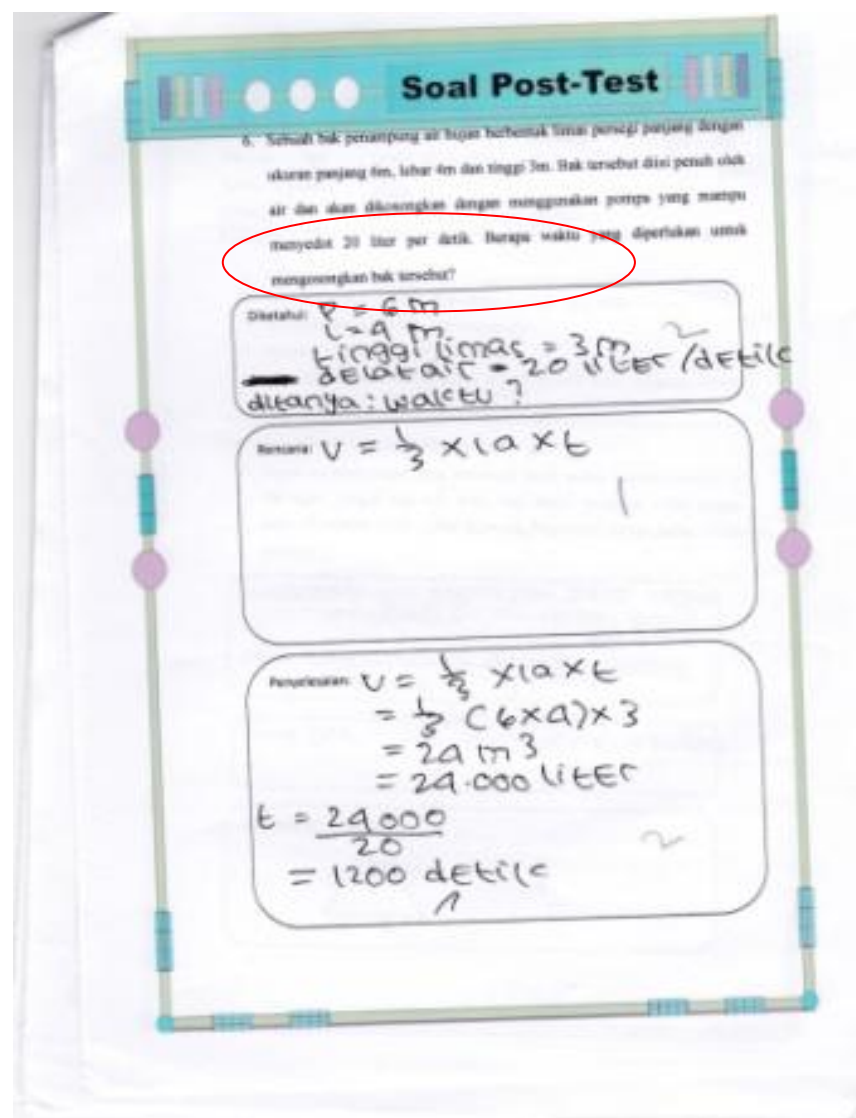 Soal Post-Test
6. Sebuah bak penampung air hujan berbentuk limas persegi panjang dengan
ukuran panjang 6m, lebar 4m dan tinggi 3m. Bak tersebut diisi penuh oleh
air dan akan dikosongkan dengan menggunakan pompa yang mampu
menyedot 20 liter per detik. Berapa waktu yang diperlukan untuk
mengosongkan bak tersebut?
Diketahui: P = 6 m
L = 4 m
tinggi limas = 3 m 2
debat air = 20 liter / detik
ditanya: waktu ?
Rencana: V = 1/3 x la x t
1
Penyelesaian: V = 1/3 x la x t
= 1/3 (6x4) x 3
= 24 m3
= 24.000 liter
t = 24000
20 2
= 1200 detik
1